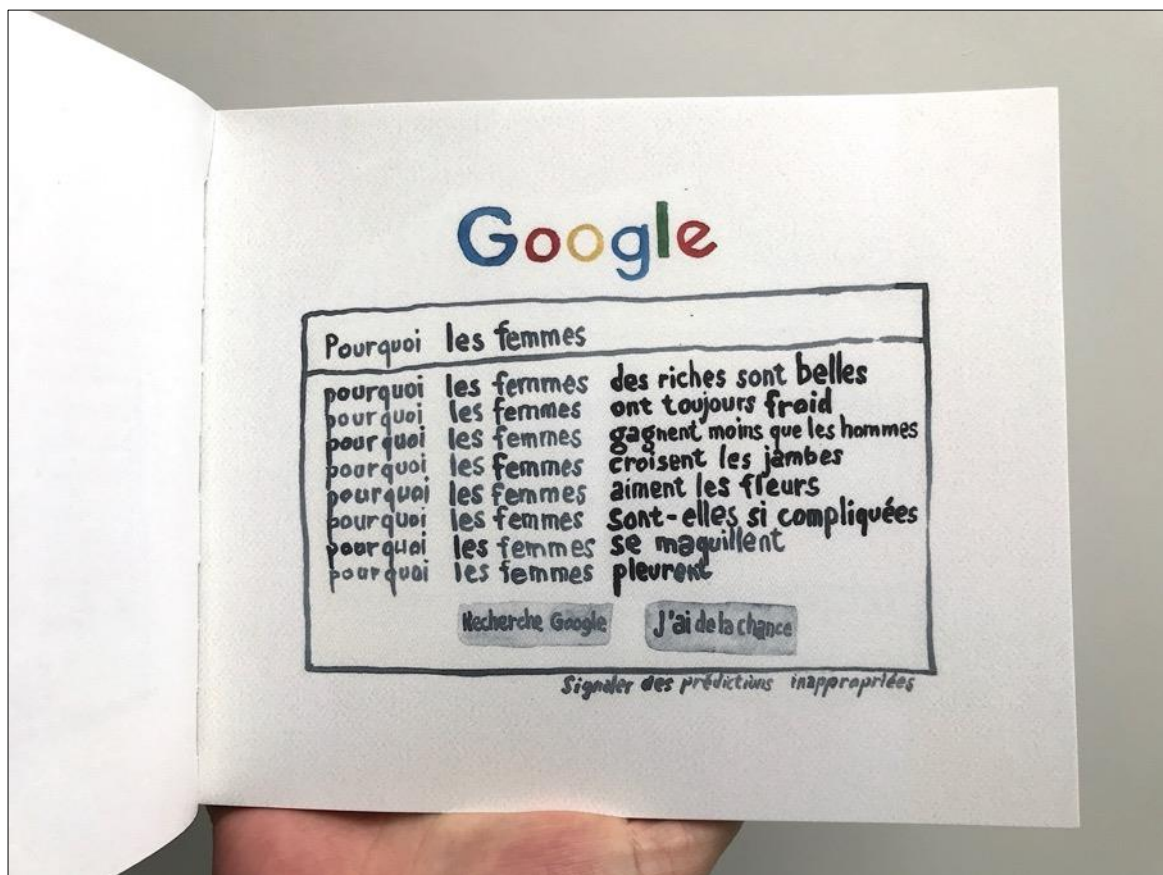 Google
Pourquoi les femmes
pourquoi les femmes des riches sont belles
pourquoi les femmes ont toujours froid
pourquoi les femmes gagnent moins que les hommes
pourquoi les femmes croisent les jambes
pourquoi les femmes aiment les fleurs
pourquoi les femmes sont-elles si compliquées
pourquoi les femmes se maquillent
pourquoi les femmes pleurent
Recherche Google J'ai de la chance
Signaler des prédictions inappropriées